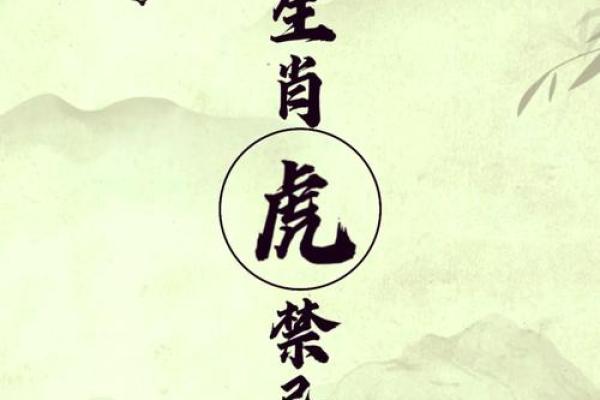 生肖虎禁